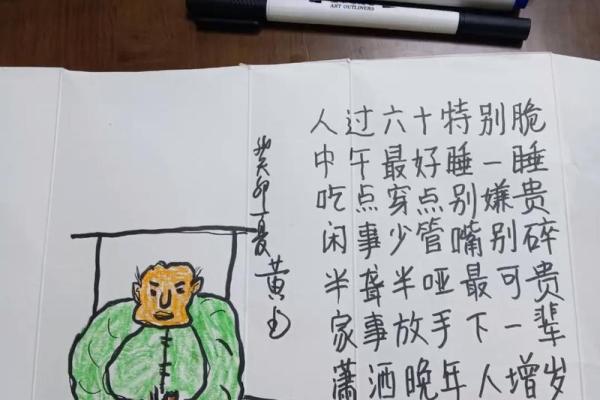 ART OUTLINERS
人过六十特别脆
中午最好睡一睡
吃点穿点别嫌贵
闲事少管嘴别碎
半聋半哑最可贵
家事放手下一辈
潇洒晚年人增岁
癸卯夏黄